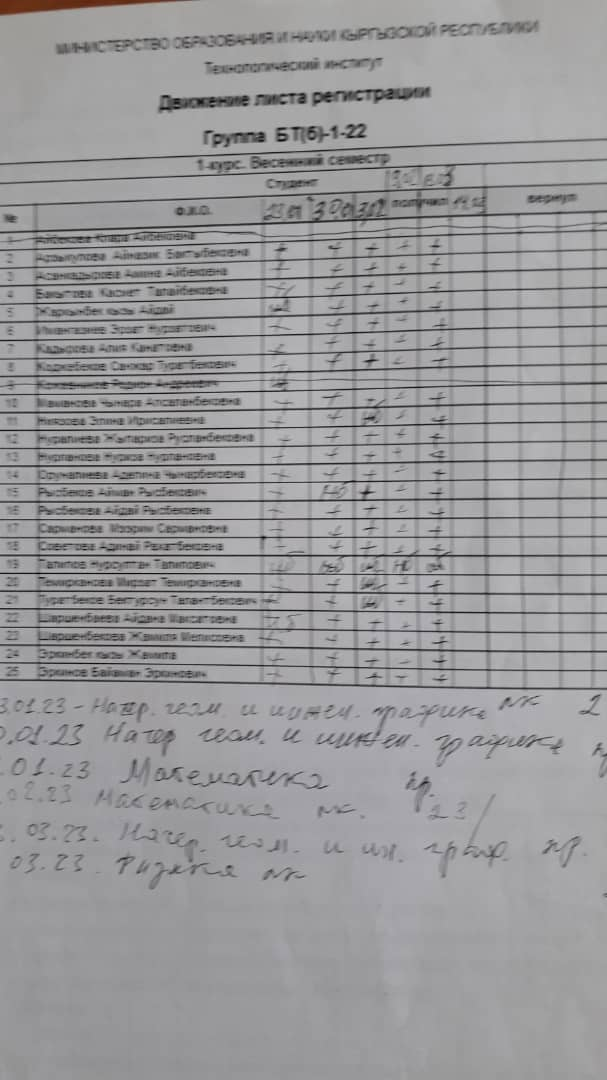 МИНИСТЕРСТВО ОБРАЗОВАНИЯ И НАУКИ КЫРГЫЗСКОЙ РЕСПУБЛИКИ
Технологический институт
Движение листа регистрации
Группа БТ(б)-1-22
1-курс. Весенний семестр
Студент
№ Ф.И.О. получил вернул
1 Айбекова Клара Айбековна
2 Бактыбековна + + + + +
3 Амина Айбековна + + + + +
4 Бакытова Касиет Талайбековна + + + +
5 Жаркынбек кызы Айдай + + + +
6 Иманказиев Эрзат Нурзатович + + + + +
7 Кадырова Алия Канатовна + + + + +
8 Кожебеков Санжар Туратбекович + + + +
9 Родион Андреевич
10 Маманова Чынара + + + +
11 Ниязова Элина + + нб + +
12 Нуралиева Жыпаркоз Русланбековна + + + + +
13 Нурланова Нуркоз Нурлановна + + + + +
14 Орункалиева Аделина Чынарбековна + + + + +
15 Рысбеков Айман Рысбекович + нб + + +
16 Рысбекова Айдай Рысбековна + + + + +
17 Сарманова Мээрим Сармановна + + + + +
18 Советова Адинай Рахатбековна + + + + +
19 Талипов Нурсултан Талипович нб нб нб нб нб
20 Темирканова Мирзат Темиркановна + + нб + +
21 Туратбеков Бектурсун Талантбекович + + нб + +
22 Шаршенбаева Айдана Максатовна + + + +
23 Шаршенбекова Жамиля Мелисовна + + + + +
24 Эркинбек кызы Жамила + + + + +
25 Эркинов Байаман Эркинович + + + + +
3.01.23 - Начер. геом. и инжен. графика лк 2
0.01.23 Начер геом. и инжен. графика
.01.23 Математика пр.
.02.23 Математика лк. 23/
.03.23. Начер. геом. и ин. граф. пр.
03.23. Физика лк